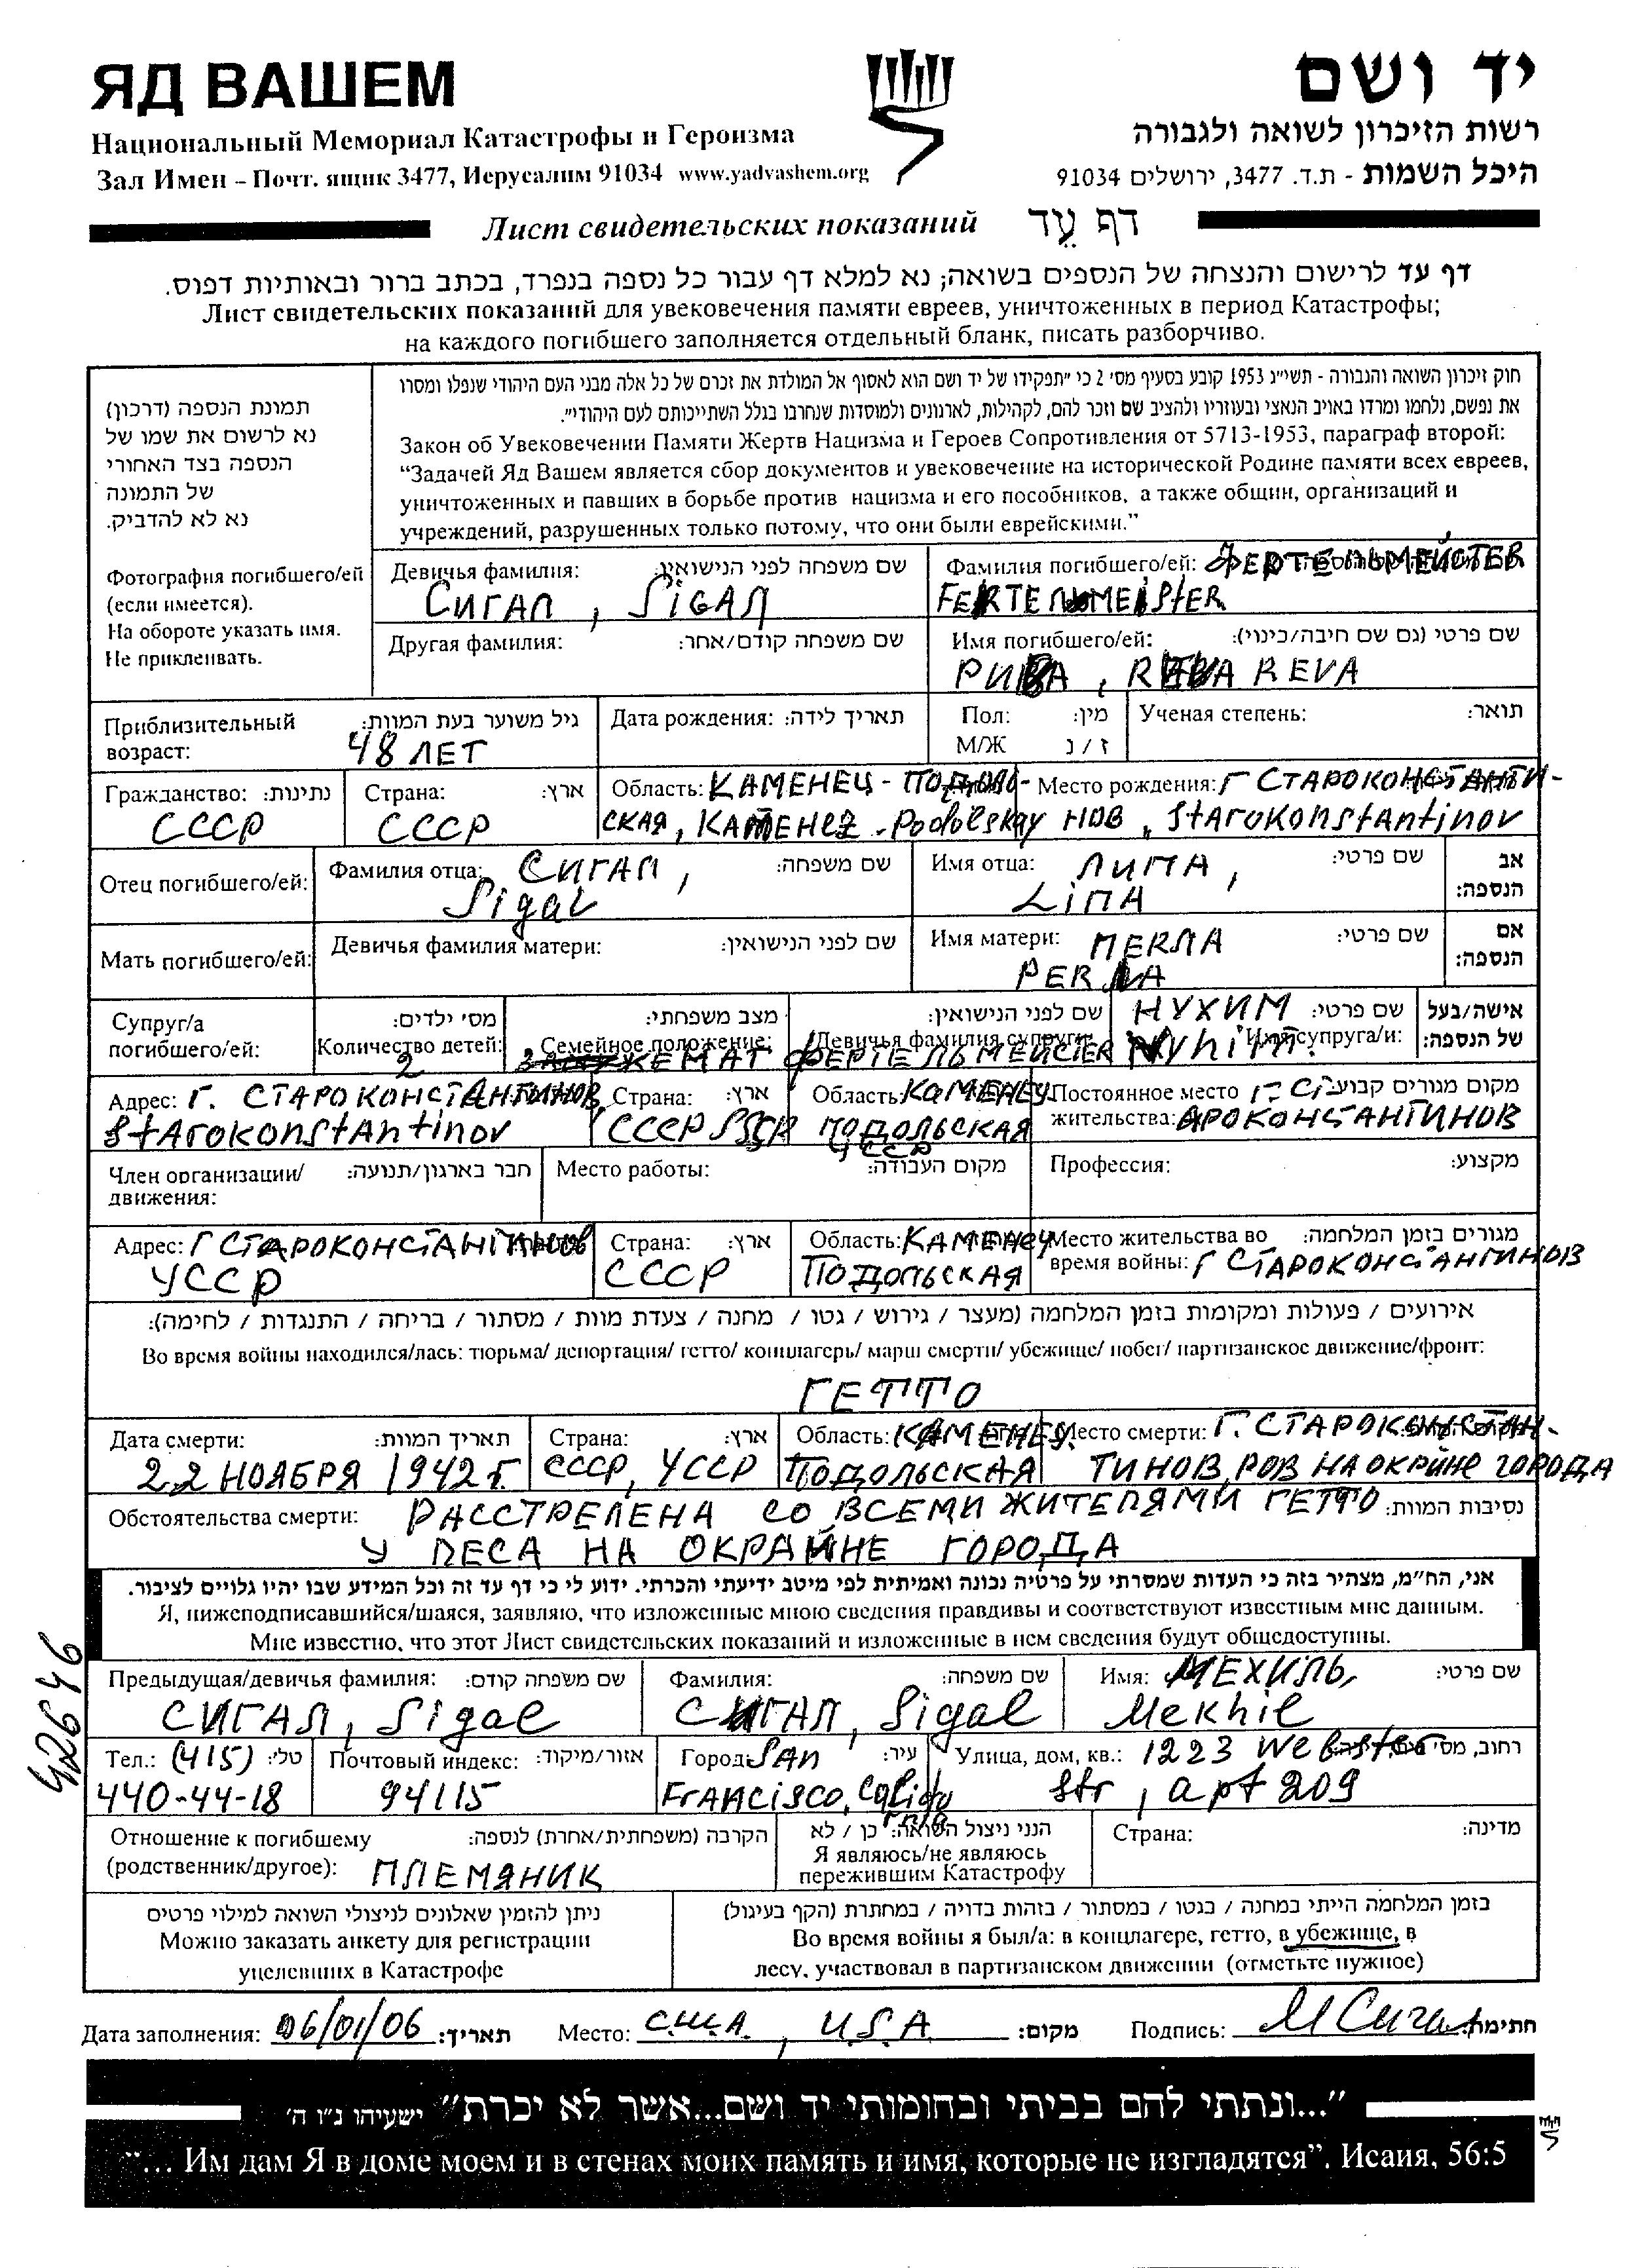 ЯД ВАШЕМ
יד ושם
Национальный Мемориал Катастрофы и Героизма
רשות הזיכרון לשואה ולגבורה
Зал Имен – Почт. ящик 3477, Иерусалим 91034 www.yadvashem.org
היכל השמות - ת.ד. 3477, ירושלים 91034
Лист свидетельских показаний דף עֵד
דף עד לרישום והנצחה של הנספים בשואה; נא למלא דף עבור כל נספה בנפרד, בכתב ברור ובאותיות דפוס.
Лист свидетельских показаний для увековечения памяти евреев, уничтоженных в период Катастрофы;
на каждого погибшего заполняется отдельный бланк, писать разборчиво.
תמונת הנספה (דרכון)
נא לרשום את שמו של
הנספה בצד האחורי
של התמונה
נא לא להדביק.
Фотография погибшего/ей
(если имеется).
На обороте указать имя.
Не приклеивать.
חוק זיכרון השואה והגבורה - תשי״ג 1953 קובע בסעיף מס׳ 2 כי ״תפקידו של יד ושם הוא לאסוף אל המולדת את זכרם של כל אלה מבני העם היהודי שנפלו ומסרו
את נפשם, נלחמו ומרדו באויב הנאצי ובעוזריו ולהציב שם וזכר להם, לקהילות, לארגונים ולמוסדות שנחרבו בגלל השתייכותם לעם היהודי״.
Закон об Увековечении Памяти Жертв Нацизма и Героев Сопротивления от 5713-1953, параграф второй:
“Задачей Яд Вашем является сбор документов и увековечение на исторической Родине памяти всех евреев,
уничтоженных и павших в борьбе против нацизма и его пособников, а также общин, организаций и
учреждений, разрушенных только потому, что они были еврейскими.”
Девичья фамилия: שם משפחה לפני הנישואין:
СИГАЛ, SIGAЛ
Фамилия погибшего/ей: ФЕРТЕЛЬМЕЙСТЕR
FERTEЛЬMEISTER
Другая фамилия: שם משפחה קודם/אחר:
Имя погибшего/ей: שם פרטי (גם שם חיבה/כינוי):
РИВА, REVA REVA
Приблизительный возраст: גיל משוער בעת המוות:
48 ЛЕТ
Дата рождения: תאריך לידה:
Пол: מין:
М/Ж ז / נ
Ученая степень: תואר:
Гражданство: נתינות:
СССР
Страна: ארץ:
СССР
Область: КАМЕНЕЦ-ПОДОЛЬ-
СКАЯ, KAMENEZ-Podolskay
Место рождения: Г СТАРОКОНСТАНТИ-
НОВ, StaroKonstantinov
Отец погибшего/ей:
Фамилия отца: СИГАЛ, שם משפחה:
Sigal
Имя отца: ЛИПА, שם פרטי:
LiПА
אב
הנספה:
Мать погибшего/ей:
Девичья фамилия матери: שם לפני הנישואין:
Имя матери: ПЕRЛА שם פרטי:
PERЛA
אם
הנספה:
Супруг/а
погибшего/ей:
מס׳ ילדים:
Количество детей:
2
מצב משפחתי:
Семейное положение:
שם לפני הנישואין:
Девичья фамилия супруги:
ФЕРТЕЛЬМЕЙСТЕR
НУХИМ שם פרטי:
Имя супруга/и:
Nyhim
אישה/בעל
של הנספה:
Адрес: Г. СТАРОКОНСТАНТИНОВ
StAroKonstAntinov
Страна: ארץ:
СССР SSSR
Область: КАМЕНЕЦ
ПОДОЛЬСКАЯ
УССР
Постоянное место жительства: Г. СТ
АРОКОНСТАНТИНОВ
מקום מגורים קבוע:
Член организации/
движения:
חבר בארגון/תנועה:
Место работы: מקום העבודה:
Профессия: מקצוע:
Адрес: Г СТАРОКОНСТАНТИНОВ
УССР
Страна: ארץ:
СССР
Область: КАМЕНЕЦ
ПОДОЛЬСКАЯ
Место жительства во מגורים בזמן המלחמה:
время войны: Г СТАРОКОНСТАНТИНОВ
אירועים / פעולות ומקומות בזמן המלחמה (מעצר / גירוש / גטו / מחנה / צעדת מוות / מסתור / בריחה / התנגדות / לחימה):
Во время войны находился/лась: тюрьма/ депортация/ гетто/ концлагерь/ марш смерти/ убежище/ побег/ партизанское движение/фронт:
ГЕТТО
Дата смерти: תאריך המוות:
22 НОЯБРЯ 1942 г.
Страна: ארץ:
СССР, УССР
Область: КАМЕНЕЦ.
ПОДОЛЬСКАЯ
Место смерти: Г. СТАРОКОНСТАН-
ТИНОВ, РОВ НА ОКРАЙНЕ ГОРОДА
Обстоятельства смерти: РАССТРЕЛЕНА СО ВСЕМИ ЖИТЕЛЯМИ ГЕТТО נסיבות המוות:
У ЛЕСА НА ОКРАЙНЕ ГОРОДА
אני, הח״מ, מצהיר בזה כי העדות שמסרתי על פרטיה נכונה ואמיתית לפי מיטב ידיעתי והכרתי. ידוע לי כי דף עד זה וכל המידע שבו יהיו גלויים לציבור.
Я, нижеподписавшийся/шаяся, заявляю, что изложенные мною сведения правдивы и соответствуют известным мне данным.
Мне известно, что этот Лист свидетельских показаний и изложенные в нем сведения будут общедоступны.
426746
Предыдущая/девичья фамилия: שם משפחה קודם:
СИГАЛ, Sigal
Фамилия: שם משפחה:
СИГАЛ, Sigal
Имя: МЕХИЛЬ, שם פרטי:
Mekhil
Тел.: (415) טלי:
440-44-18
Почтовый индекс: אזור/מיקוד:
94115
Город: SAn עיר:
FrAncisco, Califor
nia
Улица, дом, кв.: 1223 Webster
Str, apt 209
Отношение к погибшему הקרבה (משפחתית/אחרת) לנספה:
(родственник/другое): ПЛЕМЯНИК
הנני ניצול השואה: כן / לא
Я являюсь/не являюсь
пережившим Катастрофу
Страна: מדינה:
ניתן להזמין שאלונים לניצולי השואה למילוי פרטים
Можно заказать анкету для регистрации
уцелевших в Катастрофе
בזמן המלחמה הייתי במחנה / בגטו / במסתור / בזהות בדויה / במחתרת (הקף בעיגול)
Во время войны я был/а: в концлагере, гетто, в убежище, в
лесу, участвовал в партизанском движении (отметьте нужное)
Дата заполнения: 06/01/06 תאריך: Место: С.Ш.А., U.S.A מקום: Подпись: М Сигал חתימה:
”...ונתתי להם בביתי ובחומותי יד ושם...אשר לא יכרת” ישעיהו נ״ו ה׳
“... Им дам Я в доме моем и в стенах моих память и имя, которые не изгладятся”. Исаия, 56:5